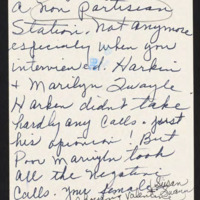 a non partisean
Station. Not anymore
especially when you
interviewed. Harkin
& Marilyn Quayle.
Harken didn't take
hardly any Calls. just
his opinion! But
Poor Marilyn took
all the negative
Calls. your female Susan
Valentine